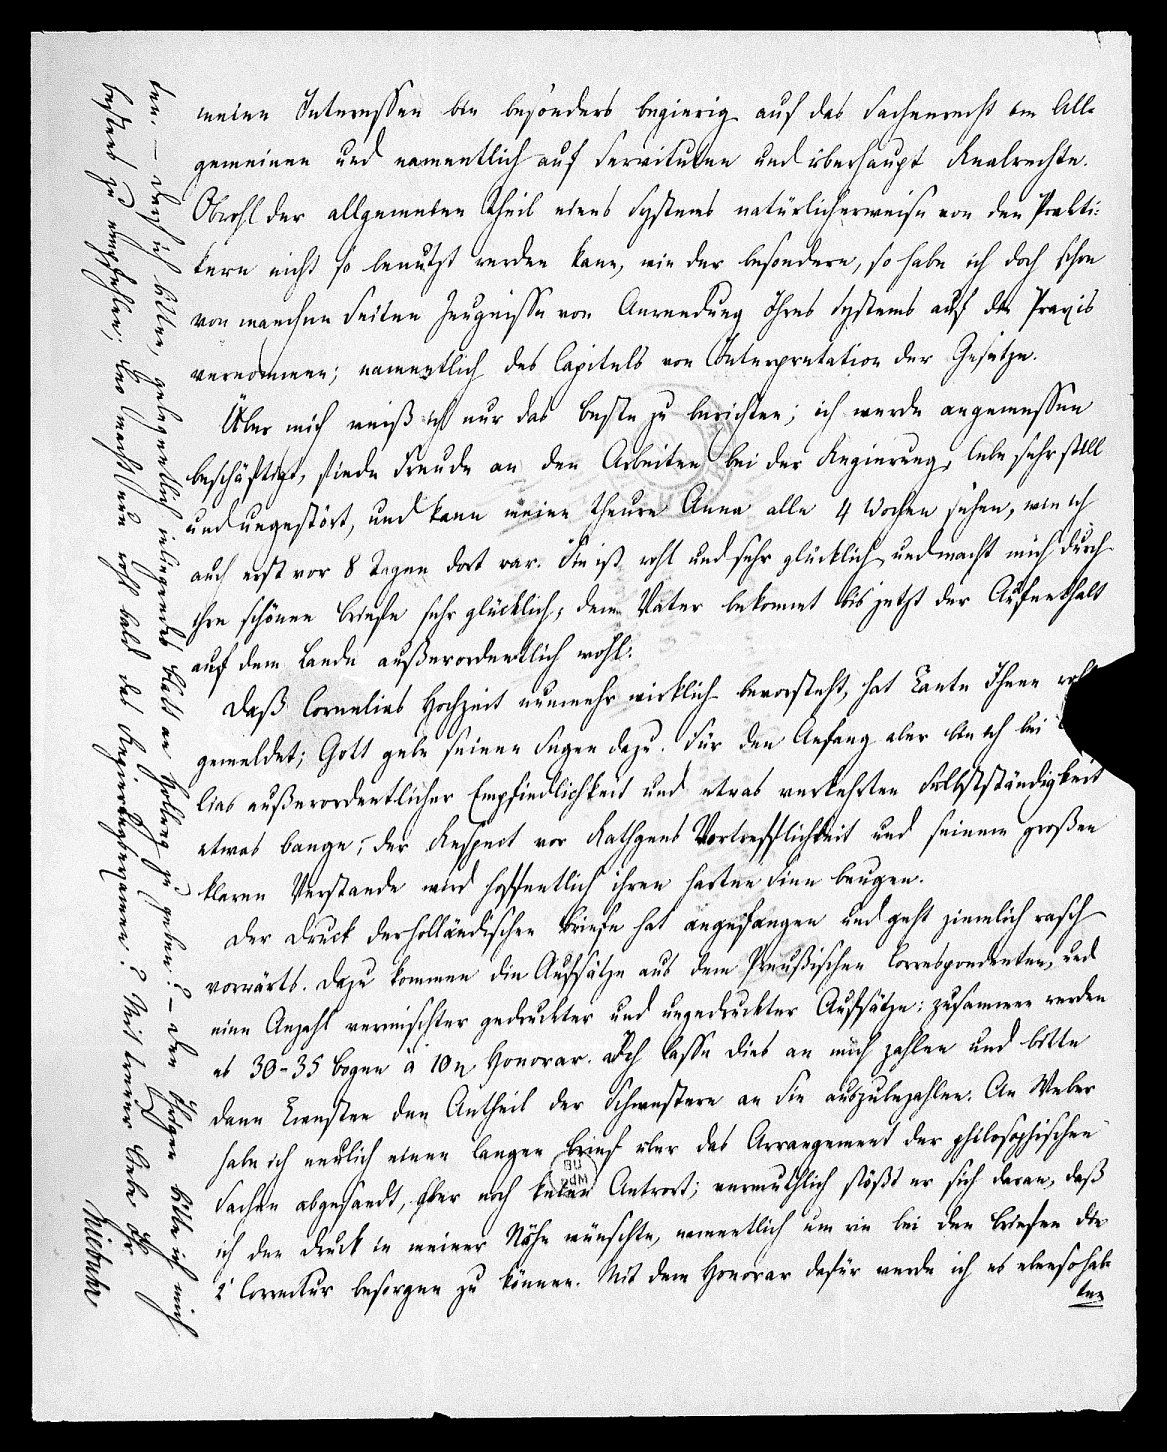 meinen Interessen bin besonders begierig auf das Sachenrecht im All-
gemeinen und namentlich auf Servituten und überhaupt Realrechte.
Obwohl der allgemeine Theil eines Systems natürlicherweise von den Prakti-
kern nicht so benutzt werden kann, wie der besondere, so habe ich doch schon
von manchen Seiten Zeugnisse von Anwendung Ihres Systems auf die Praxis
vernommen; namentlich des Capitels von Interpretation der Gesetze.
Über mich weiß ich nur das beste zu berichten; ich werde angemessen
beschäftigt, finde Freude an den Arbeiten bei der Regierung, lebe sehr still
und ungestört, und kann meine theure Anna alle 4 Wochen sehen, wie ich
auch erst vor 8 Tagen dort war. Sie ist wohl und sehr glücklich und macht mich durch
ihre schönen Briefe sehr glücklich; dem Vater bekommt bis jetzt der Aufenthalt
auf dem Lande außerordentlich wohl.
Daß Cornelias Hochzeit nunmehr wirklich bevorsteht, hat Tante Ihnen wohl
gemeldet; Gott gebe seinen Segen dazu. Für den Anfang aber bin ich bei
lias außerordentlicher Empfindlichkeit und etwas verkehrten Selbstständigkeit
etwas bange; der Respect vor Rathgens Vortrefflichkeit und seinem großen
klaren Verstande wird hoffentlich ihren harten Sinn beugen.
Der Druck der holländischen Briefe hat angefangen und geht ziemlich rasch
vorwärts. Dazu kommen die Aufsätze aus dem Preußischen Correspondenten, und
eine Anzahl vermischter gedruckter und ungedruckter Aufsätze; zusammen werden
es 30-35 Bogen à 10 Honorar. Ich lasse dies an mich zahlen und bitte
dann Twesten den Antheil der Schwestern an Sie auszubezahlen. An Weber
habe ich neulich einen langen Brief über das Arrangement der philosophischen
Sachen abgesandt, aber noch keine Antwort; vermuthlich stößt er sich daran, daß
ich den Druck in meiner Nähe wünschte, namentlich um wie bei den Briefen die
2 Correctur besorgen zu können. Mit dem Honorar dafür werde ich es ebenso halten
ten
ten. – Darf ich bitten, gelegentlich inliegendes Blatt an zu geben? – Den bitte ich mich
bestens zu empfehlen; wohl bald das ? Mit treuer Liebe Ihr
Niebuhr